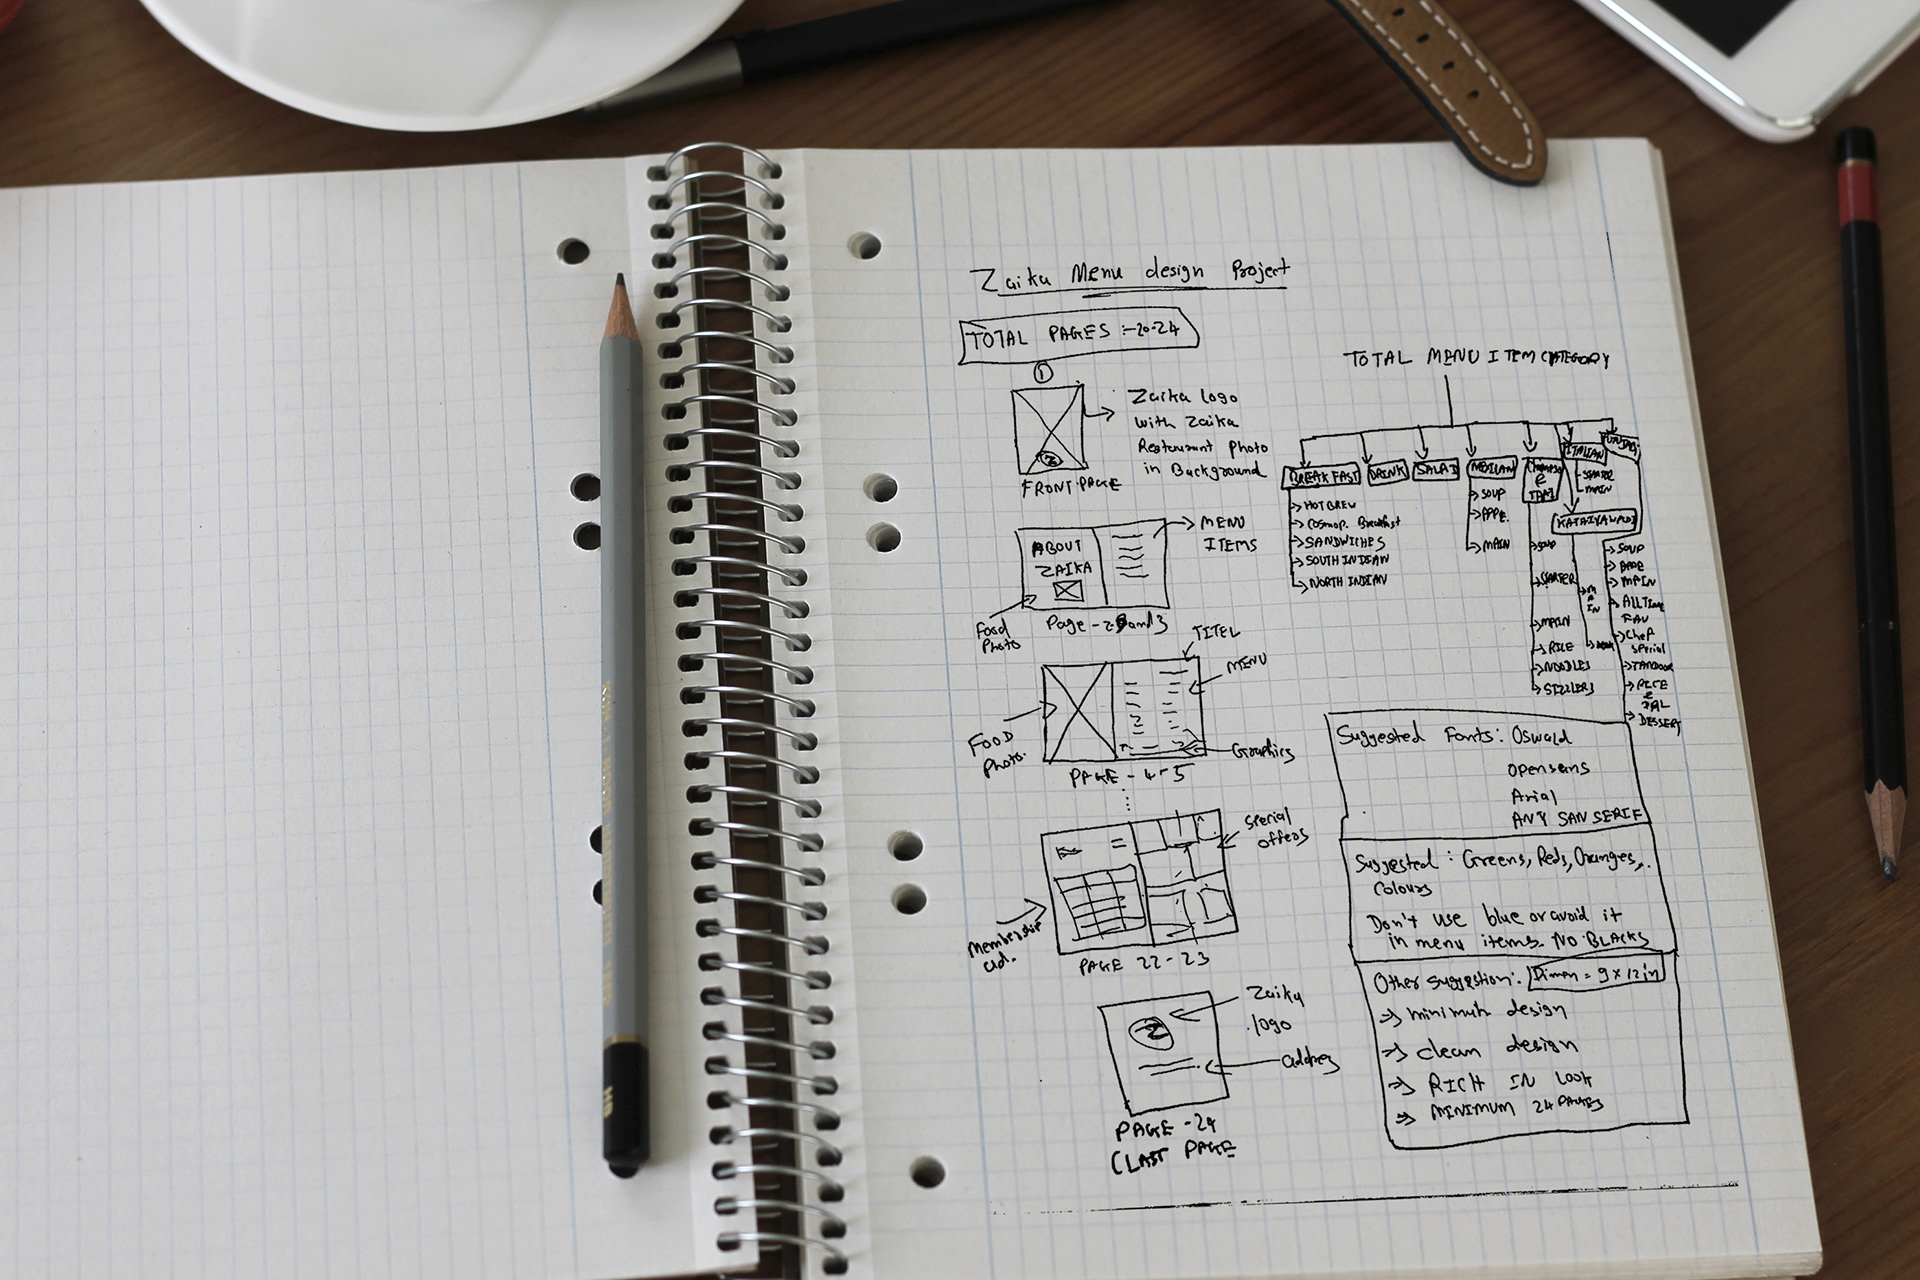 Zaika Menu design Project
TOTAL PAGES :- 20-24
1
Zaika logo
with Zaika
Restaurant Photo
in Background
Z
FRONT PAGE
ABOUT
ZAIKA
MENU
ITEMS
Food
Photo
Page - 2 and 3
TITEL
MENU
FOOD
Photo.
Graphics
PAGE - 4-5
special
offers
Membership
ad.
PAGE 22-23
Z
Zaika
logo
address
PAGE - 24
(LAST PAGE
TOTAL MENU ITEM CATEGORY
BREAKFAST
HOT BREW
Cosmop. Breakfast
SANDWICHES
SOUTH INDIAN
NORTH INDIAN
DRINK
SALAD
SOUP
APPE.
MAIN
Chinese
&
SOUP
STARTER
MAIN
RICE
NOODLES
SIZZLERS
ITALIAN
MAIN
KATHIYAWADI
MAIN
SOUP
APPE
MAIN
ALL Time
FAV
Chef
special
TANDOOR
RICE
&
DAL
DESSERT
Suggested Fonts: Oswald
opensans
Arial
ANY SAN SERIF
Suggested : Greens, Reds, Oranges,..
Colours
Don't use blue or avoid it
in menu items. NO BLACKS
Other suggestion: Dimen = 9 x 12 in
minimum design
clean design
RICH IN LOOK
MINIMUM 24 PAGES
HB